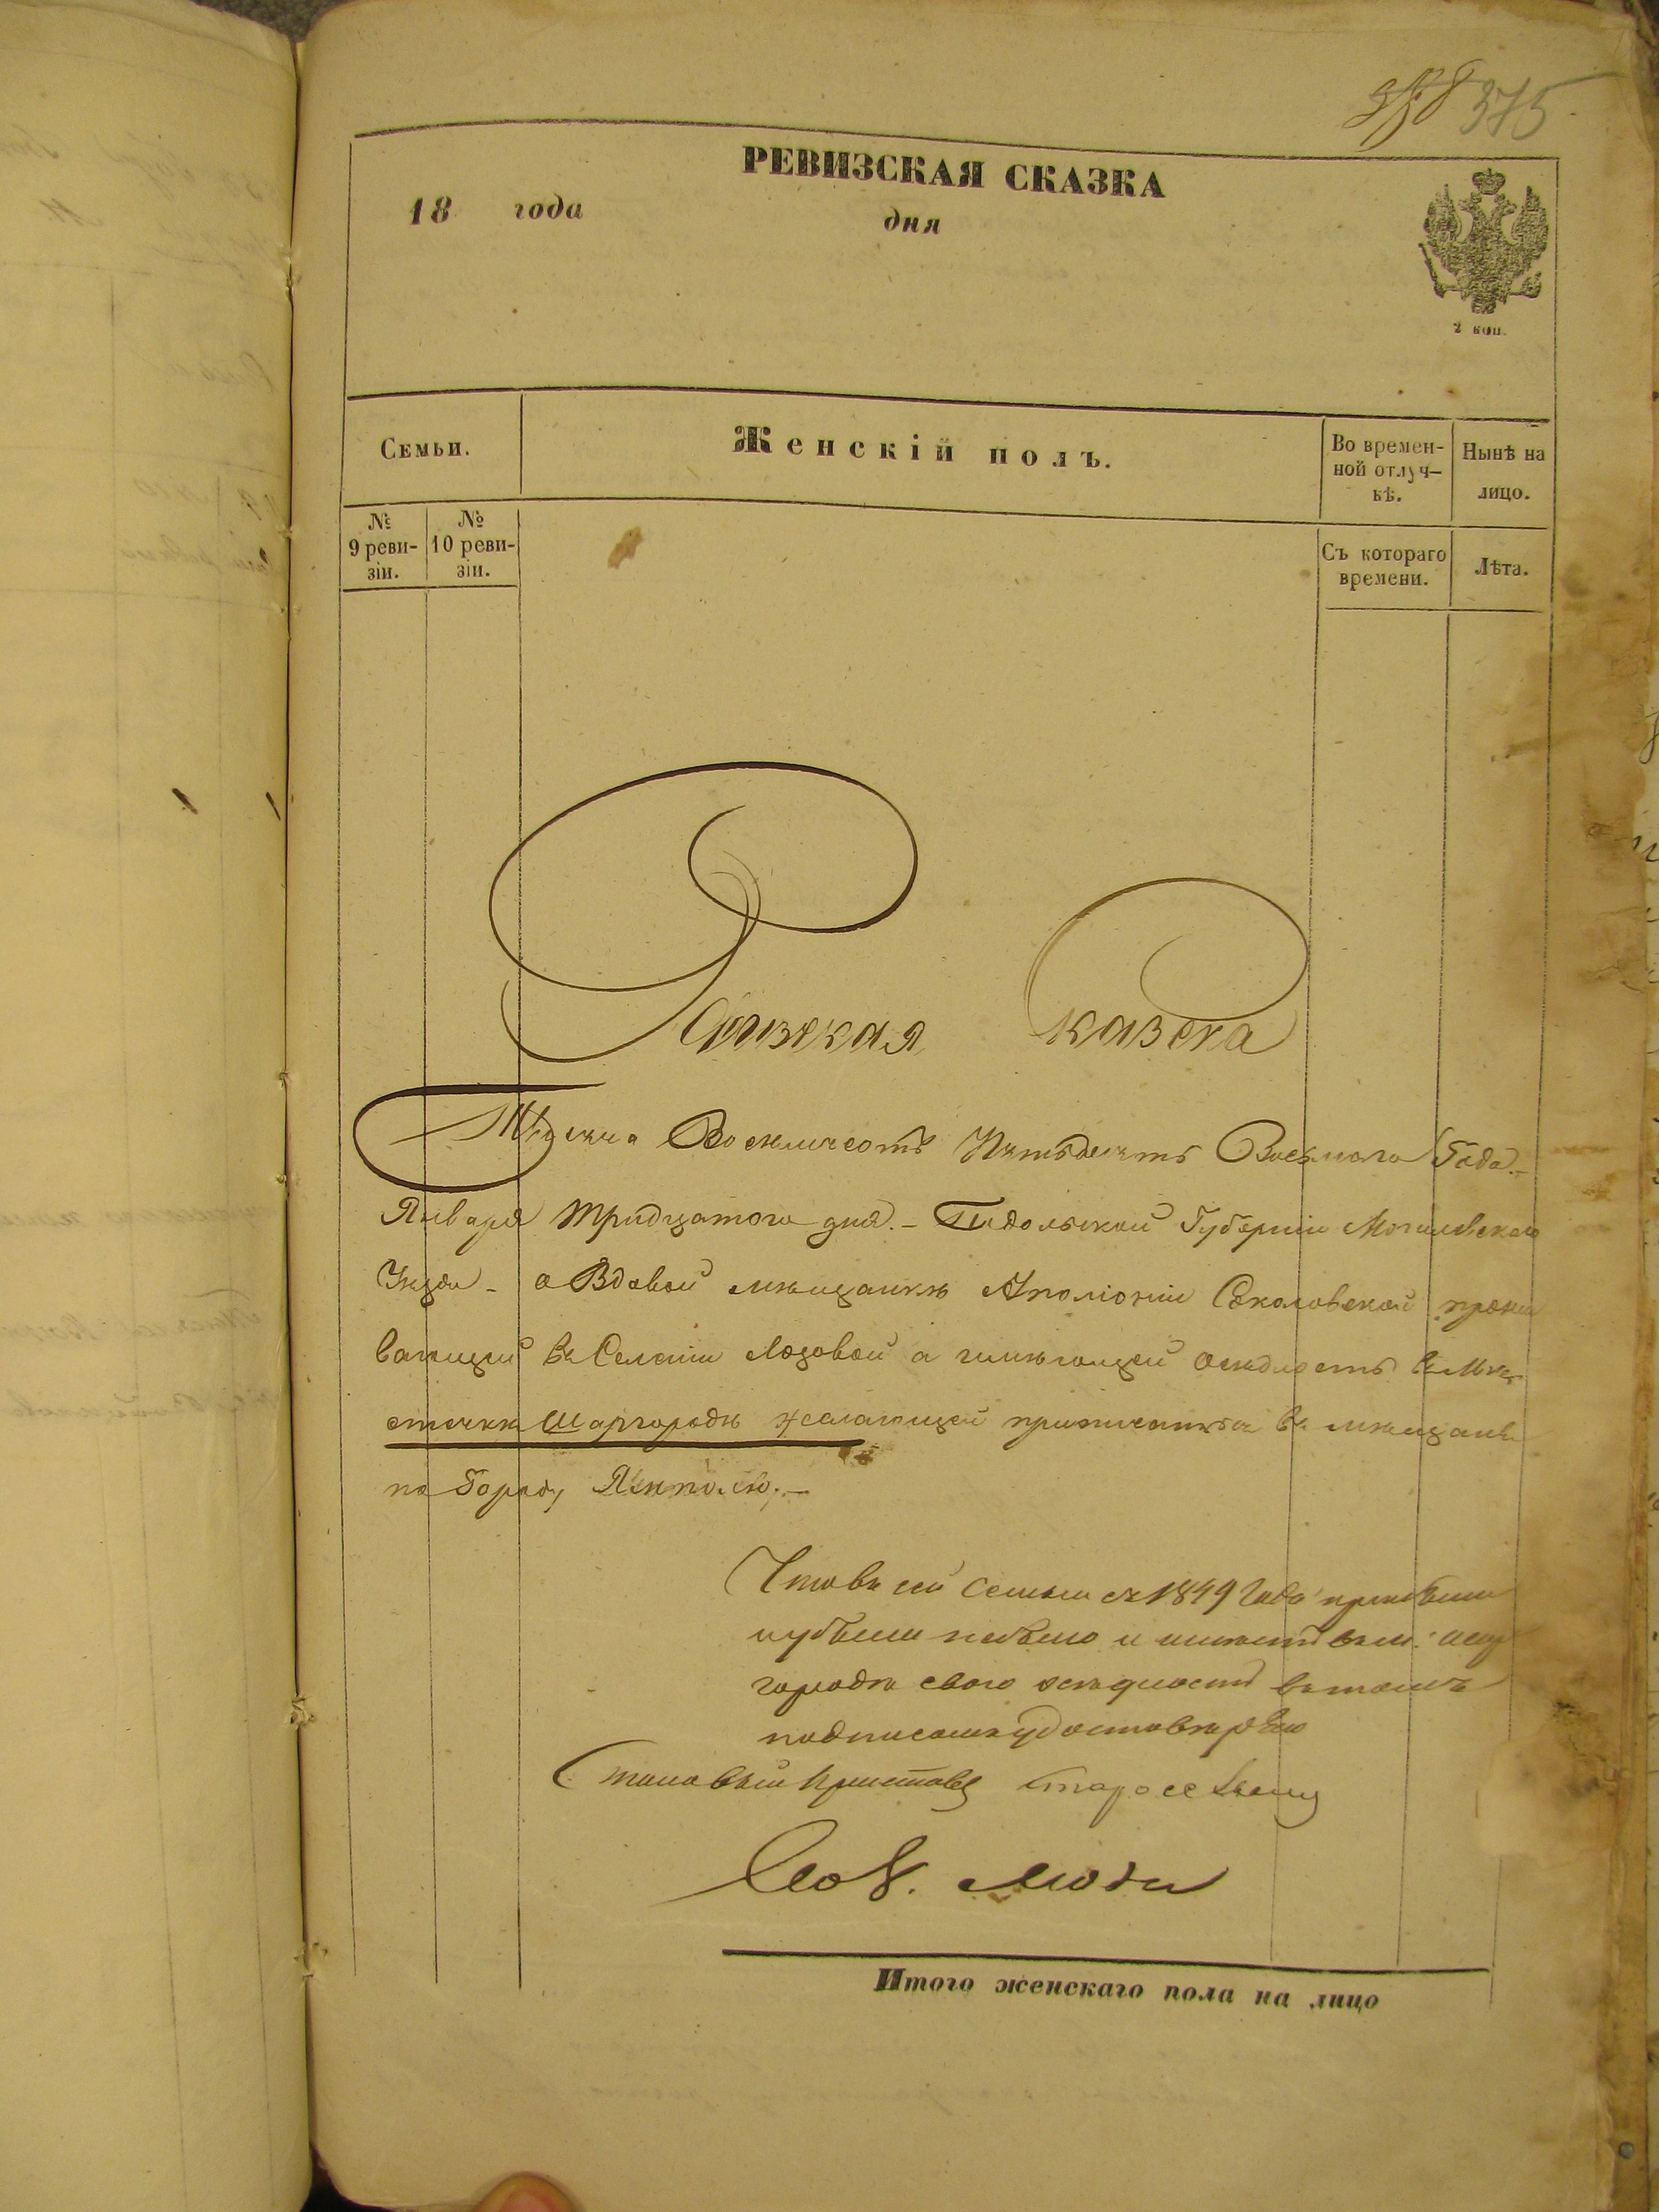 375
РЕВИЗСКАЯ СКАЗКА
18 года дня
2 коп.
Семьи.
Женскій полъ.
Во времен-
ной отлуч-
кѣ.
Нынѣ на
лицо.
№
9 реви-
зіи.
№
10 реви-
зіи.
Съ котораго
времени.
Лѣта.
Тысяча Восемьсотъ Пятьдесятъ Восьмаго Года.-
Января тридцатого дня.- Подольской Губерніи Могилевскаго
Уѣзда - о Вдовой мѣщанкѣ Аполіоніи Соколовской прожи
вающей въ Селеніи Лозовой а имѣющей осѣдлость въ Мѣ
стечкѣ Шаргородѣ желающей приписаться въ мѣщане
по Городу Ямполю.-
Что въ сей семьи съ 1849 Года прибыли
и убыли небыло и имѣетъ въ м: Шар
городѣ свою осѣдлость въ томъ
подписомъ удостовѣряю
Становый Приставъ
Итого женскаго пола на лицо